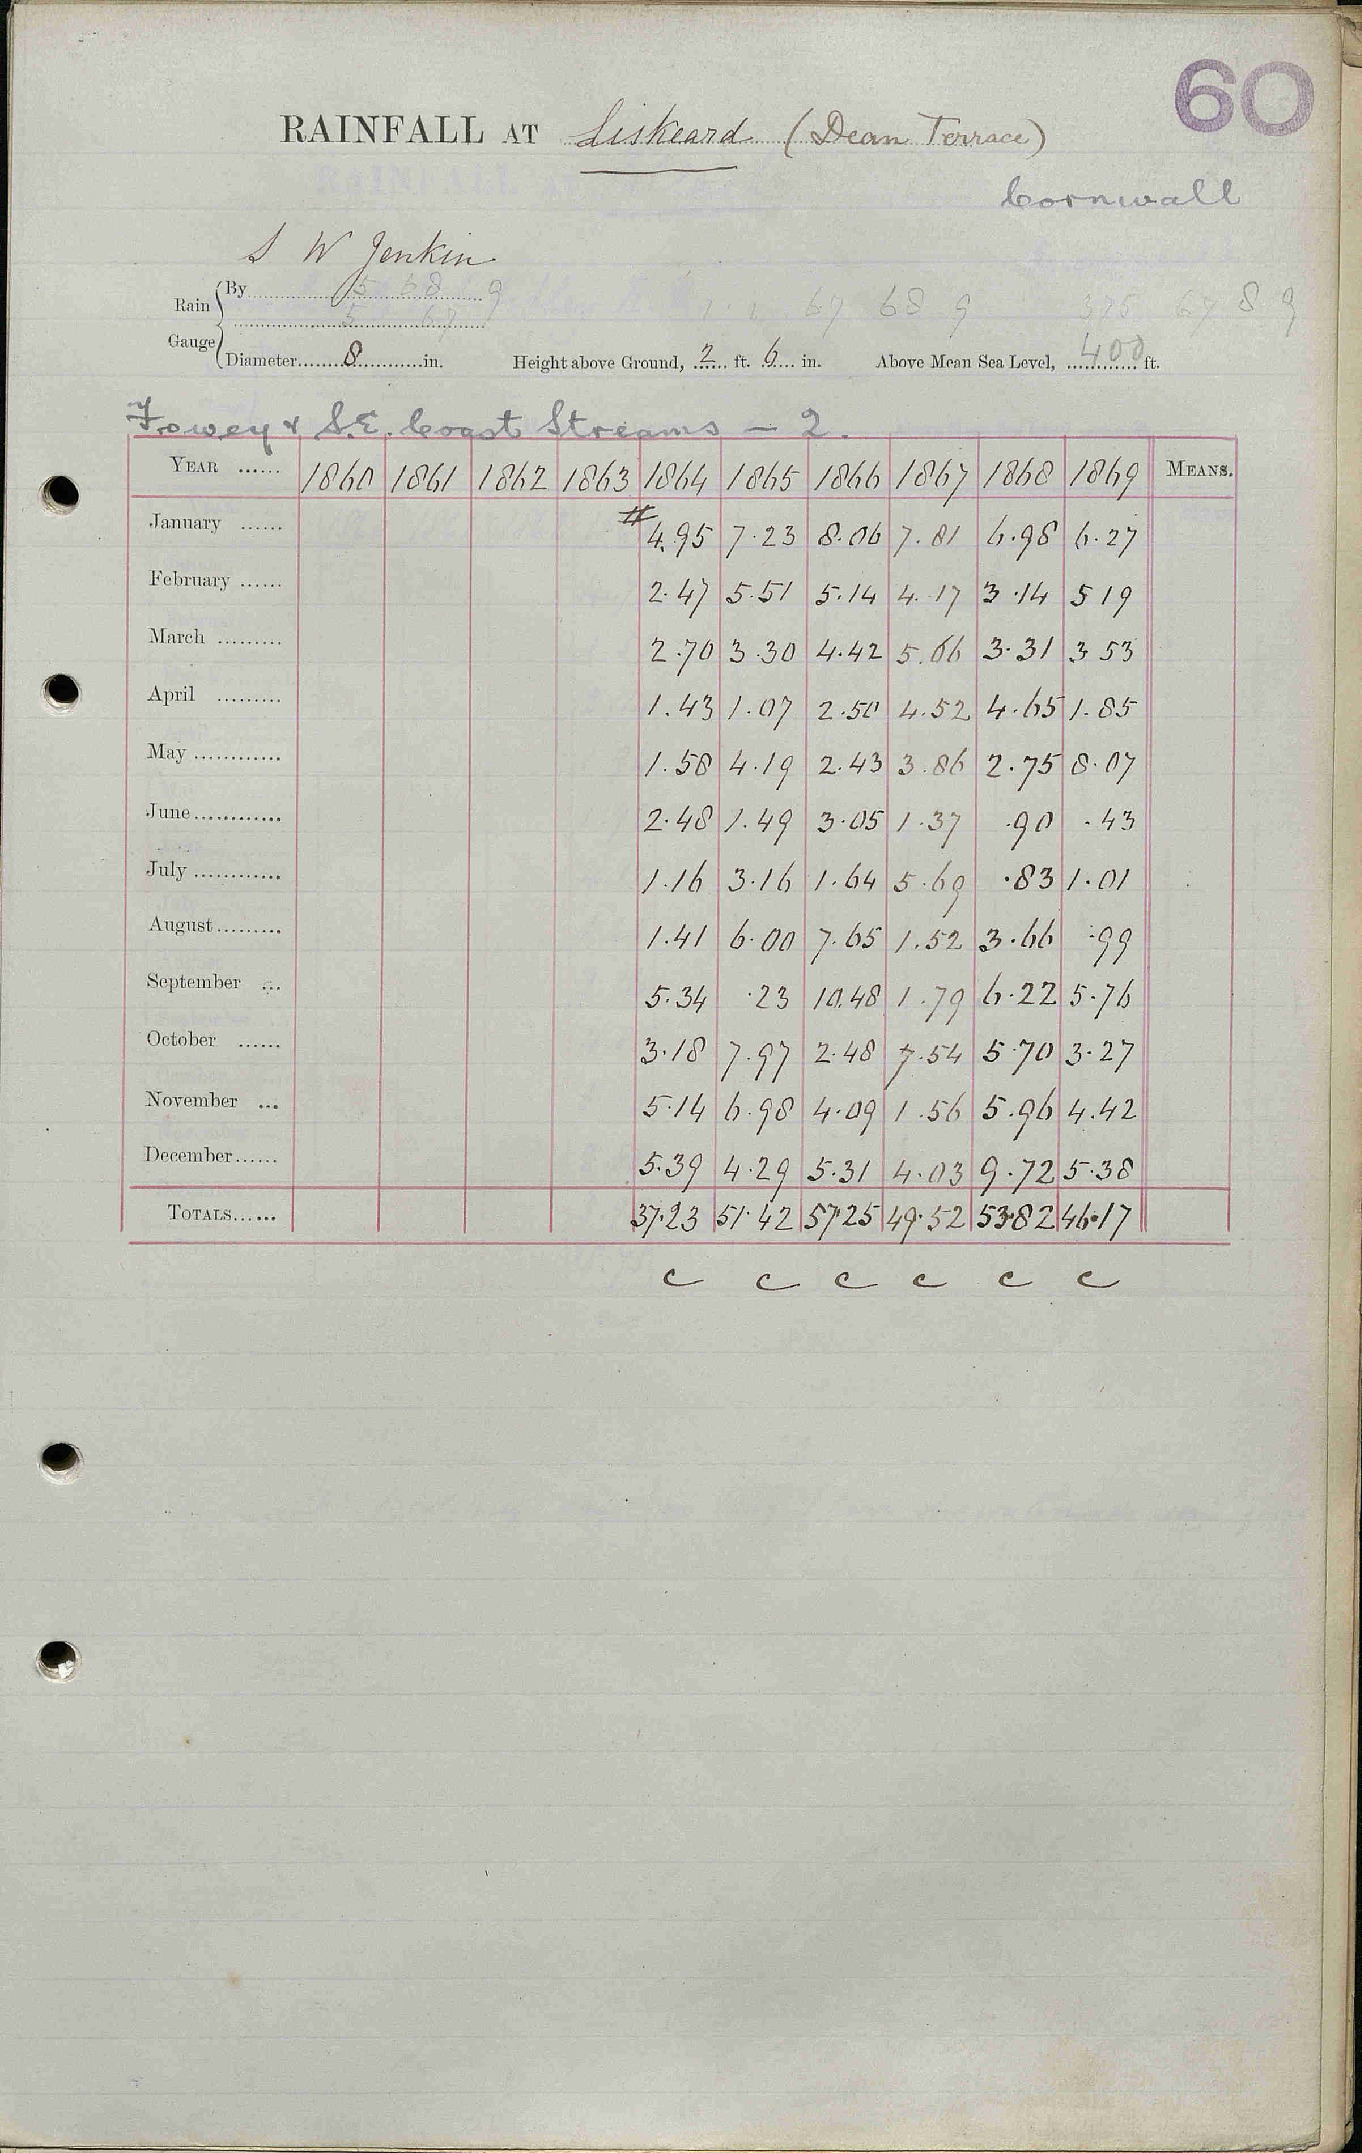 60
RAINFALL AT Liskeard (Dean Terrace)
Cornwall
S W Jenkin
Rain Gauge
By 5 68 9
5 67
67 68 9 375 67 8 9
Diameter 8 in. Height above Ground, 2 ft. 6 in. Above Mean Sea Level, 400 ft.
Fowey & S.E. Coast Streams — 2.
YEAR ...... 1860 1861 1862 1863 1864 1865 1866 1867 1868 1869 MEANS.
January ...... # 4.95 7.23 8.06 7.81 6.98 6.27
February ...... 2.47 5.51 5.14 4.17 3.14 5 19
March ......... 2.70 3.30 4.42 5.66 3.31 3 53
April ......... 1.43 1.07 2.50 4.52 4.65 1.85
May ............ 1.58 4.19 2.43 3.86 2.75 8.07
June ............ 2.48 1.49 3.05 1.37 .90 .43
July ............ 1.16 3.16 1.64 5.69 .83 1.01
August ......... 1.41 6.00 7.65 1.52 3.66 .99
September ... 5.34 .23 10.48 1.79 6.22 5.76
October ...... 3.18 7.97 2.48 7.54 5.70 3.27
November ... 5.14 6.98 4.09 1.56 5.96 4.42
December ...... 5.39 4.29 5.31 4.03 9.72 5.38
TOTALS ...... 37.23 51.42 57.25 49.52 53.82 46.17
c c c c c c